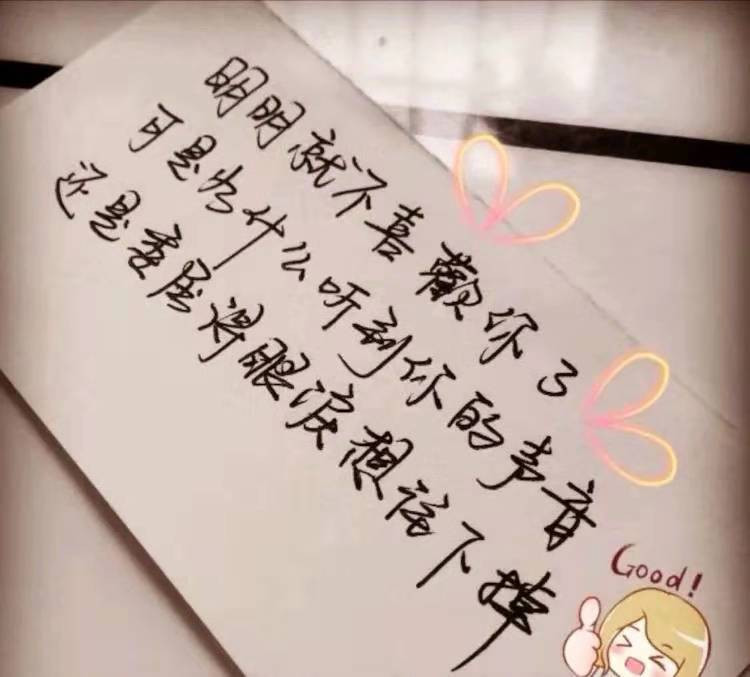 明明就不喜歡你了
可是为什么听到你的声音
还是委屈得眼泪想往下掉
Good!